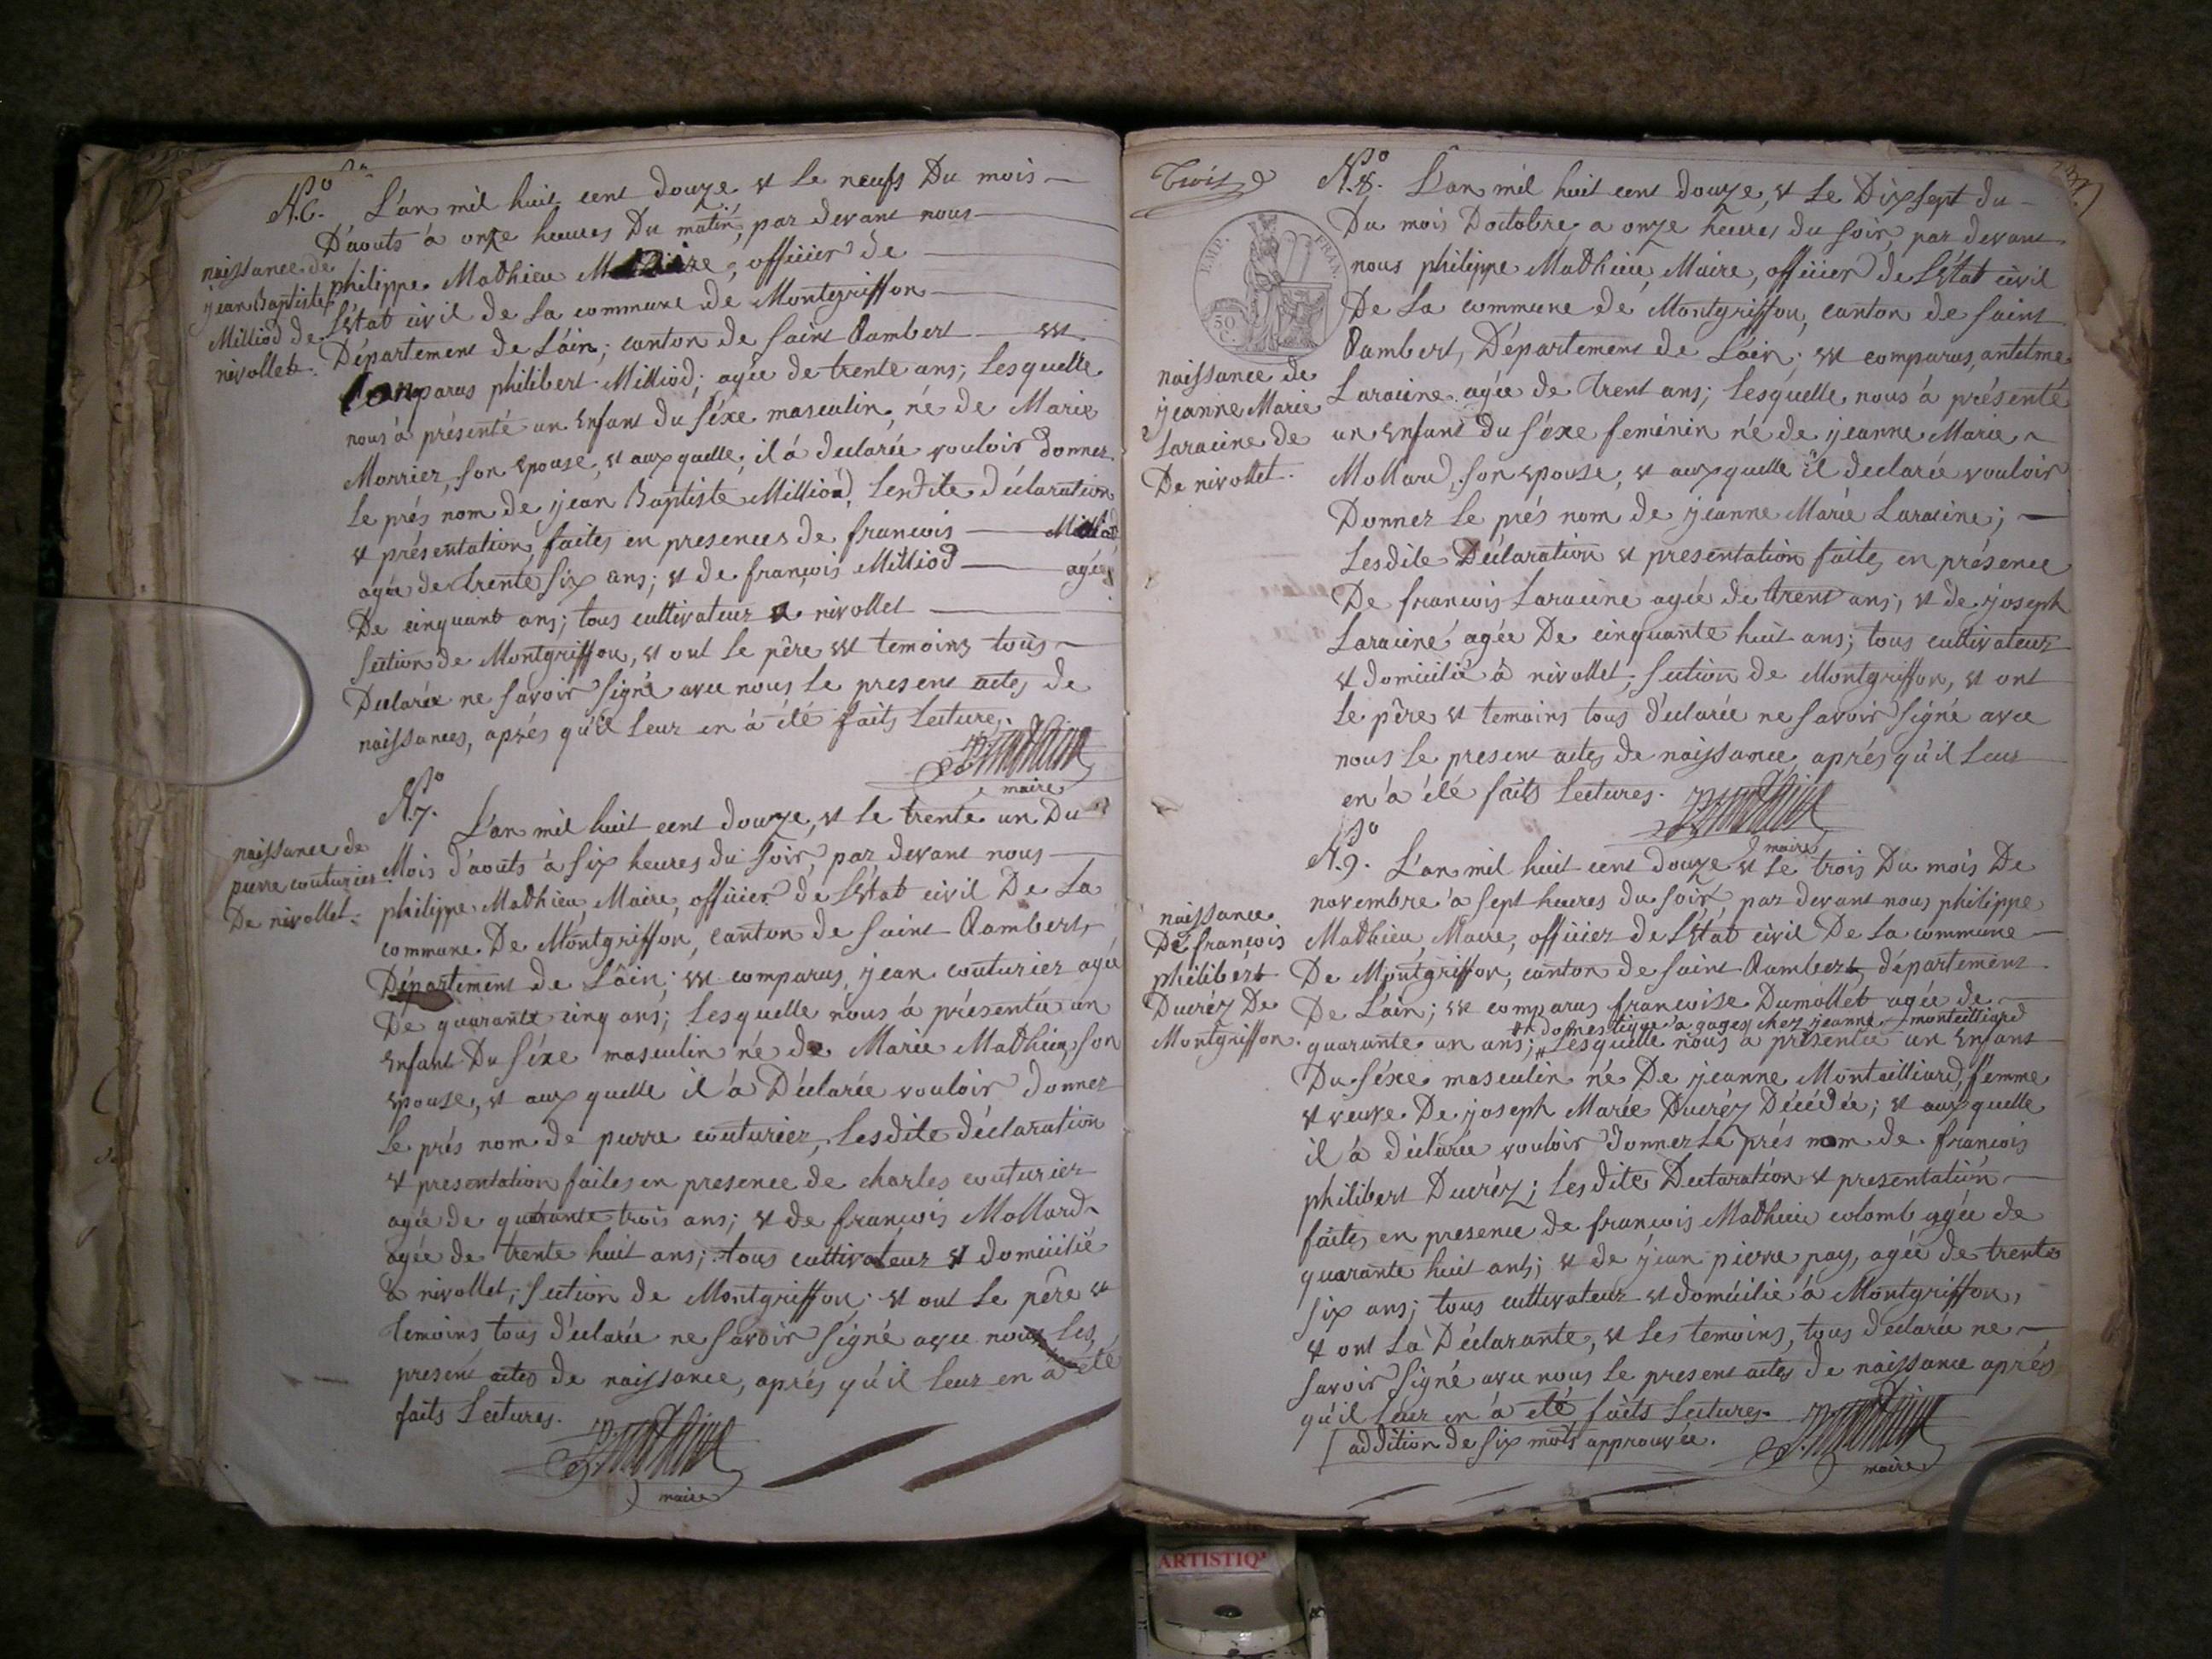 N.o 6. L'an mil huit cent douze, et le neufs Du mois
D'aouts à onze heures Du matin, par devant nous
philippe Mathieu Maire, officier de
L'Etat civil de La commune de Montgriffon
Département de L'áin; canton de Saint Rambert est
Comparus philibert Milliod; agée de trente ans; Lesquelle
nous à présenté un Enfant du Séxe masculin, né de Marie
Morrier, son Epouse, et aux quelle, il á declarée vouloir donner
Le prés nom de jean Baptiste Milliod, Lesdite déclaration
et présentation, faites en presences de francois Milliod
agée de trente six ans; et de françois Milliod agée
De cinquant ans; tous cultivateur a nivollet
Section de Montgriffon, et ont Le pêre est temoins tous
Declarée ne savoir signé avec nous Le present actes de
naissances, aprés qu'il Leur en à été faits Lectures.
maire
naissance de
jean Baptiste
Milliod de
nivollet.
N.o 7. L'an mil huit cent douze, et Le trente un Du
Mois d'aouts à six heures du soir, par devant nous
philippe Mathieu, Maire, officier de L'Etat civil De La
commune De Montgriffon, canton de Saint Rambert,
Département de L'áin; est comparus, jean couturier agée
De quarante cinq ans; Lesquelle nous à présentée un
Enfant Du Séxe masculin né de Marie Mathieu, son
epouse, et aux quelle il à Déclarée vouloir donner
Le prés nom de pierre couturier, Lesdite déclaration
et presentation faites en presence de charles couturier
agée de quarante trois ans; et de francois Mollard
agée de trente huit ans; tous cultivateur et domicilié
à nivollet, section de Montgriffon; et ont Le père et
temoins tous déclarée ne savoir signé avec nous Les
present actes de naissance, aprés qu'il Leur en à été
faits Lectures.
maire
naissance de
pierre couturier
De nivollet.
Trois
EMP. FRAN.
50
C.
N.o 8. L'an mil huit cent douze, et Le Dix sept du
Du mois Doctobre, a onze heures du soir, par devant
nous philippe Mathieu, Maire, officier de L'Etat civil
De La commune de Montgriffon, canton de saint
Rambert, Département de L'áin; est comparus, antelme
Laracine agée de trent ans; Lesquelle nous à présenté
un Enfant du séxe feminin né de jeanne Marie
Mollard, son epouse, et aux quelle il declarée vouloir
Donner Le prés nom de jeanne Marie Laracine;
Lesdite Déclaration et presentation faites en présence
De francois Laracine agée de trent ans; et de joseph
Laracine agée De cinquante huit ans; tous cultivateur
et domicilié à nivollet, section de Montgriffon, et ont
Le pêre et temoins tous déclarée ne savoir signé avec
nous Le present actes de naissance, aprés qu'il Leur
en à été faits Lectures.
maire
naissance de
jeanne Marie
Laracine de
De nivollet.
N.o 9. L'an mil huit cent douze et Le trois Du mois De
novembre à sept heures du soir, par devant nous philippe
Mathieu, Maire, officier de L'Etat civil De La commune
De Montgriffon, canton de saint Rambert, département
De L'áin; est comparus francoise Dumollet agée de
# domestique à gages chez jeanne montailliard
quarante un ans; # Lesquelle nous à présentée un Enfant
Du séxe masculin né De jeanne Montailliard, femme
et veuve De joseph Marie Ducréz Décédée; et aux quelle
il à déclarée vouloir donner Le prés nom de francois
philibert Ducréz; Lesdite Declaration et presentation
faites en presence de francois Mathieu colomb agée de
quarante huit ans; et de jean pierre pay, agée de trente
six ans; tous cultivateur et domicilié à Montgriffon,
et ont La Déclarante, et Les temoins, tous declarée ne
savoir signé avec nous Le present actes de naissance aprés
qu'il Leur en à été faits Lectures.
addition de six mots approuvée.
maire
naissance
De françois
philibert
Ducréz De
Montgriffon.
ARTISTIQ